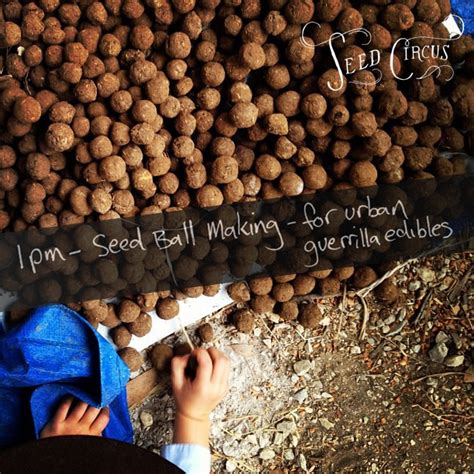 SEED CIRCUS
1pm - Seed Ball Making - for urban
guerrilla edibles